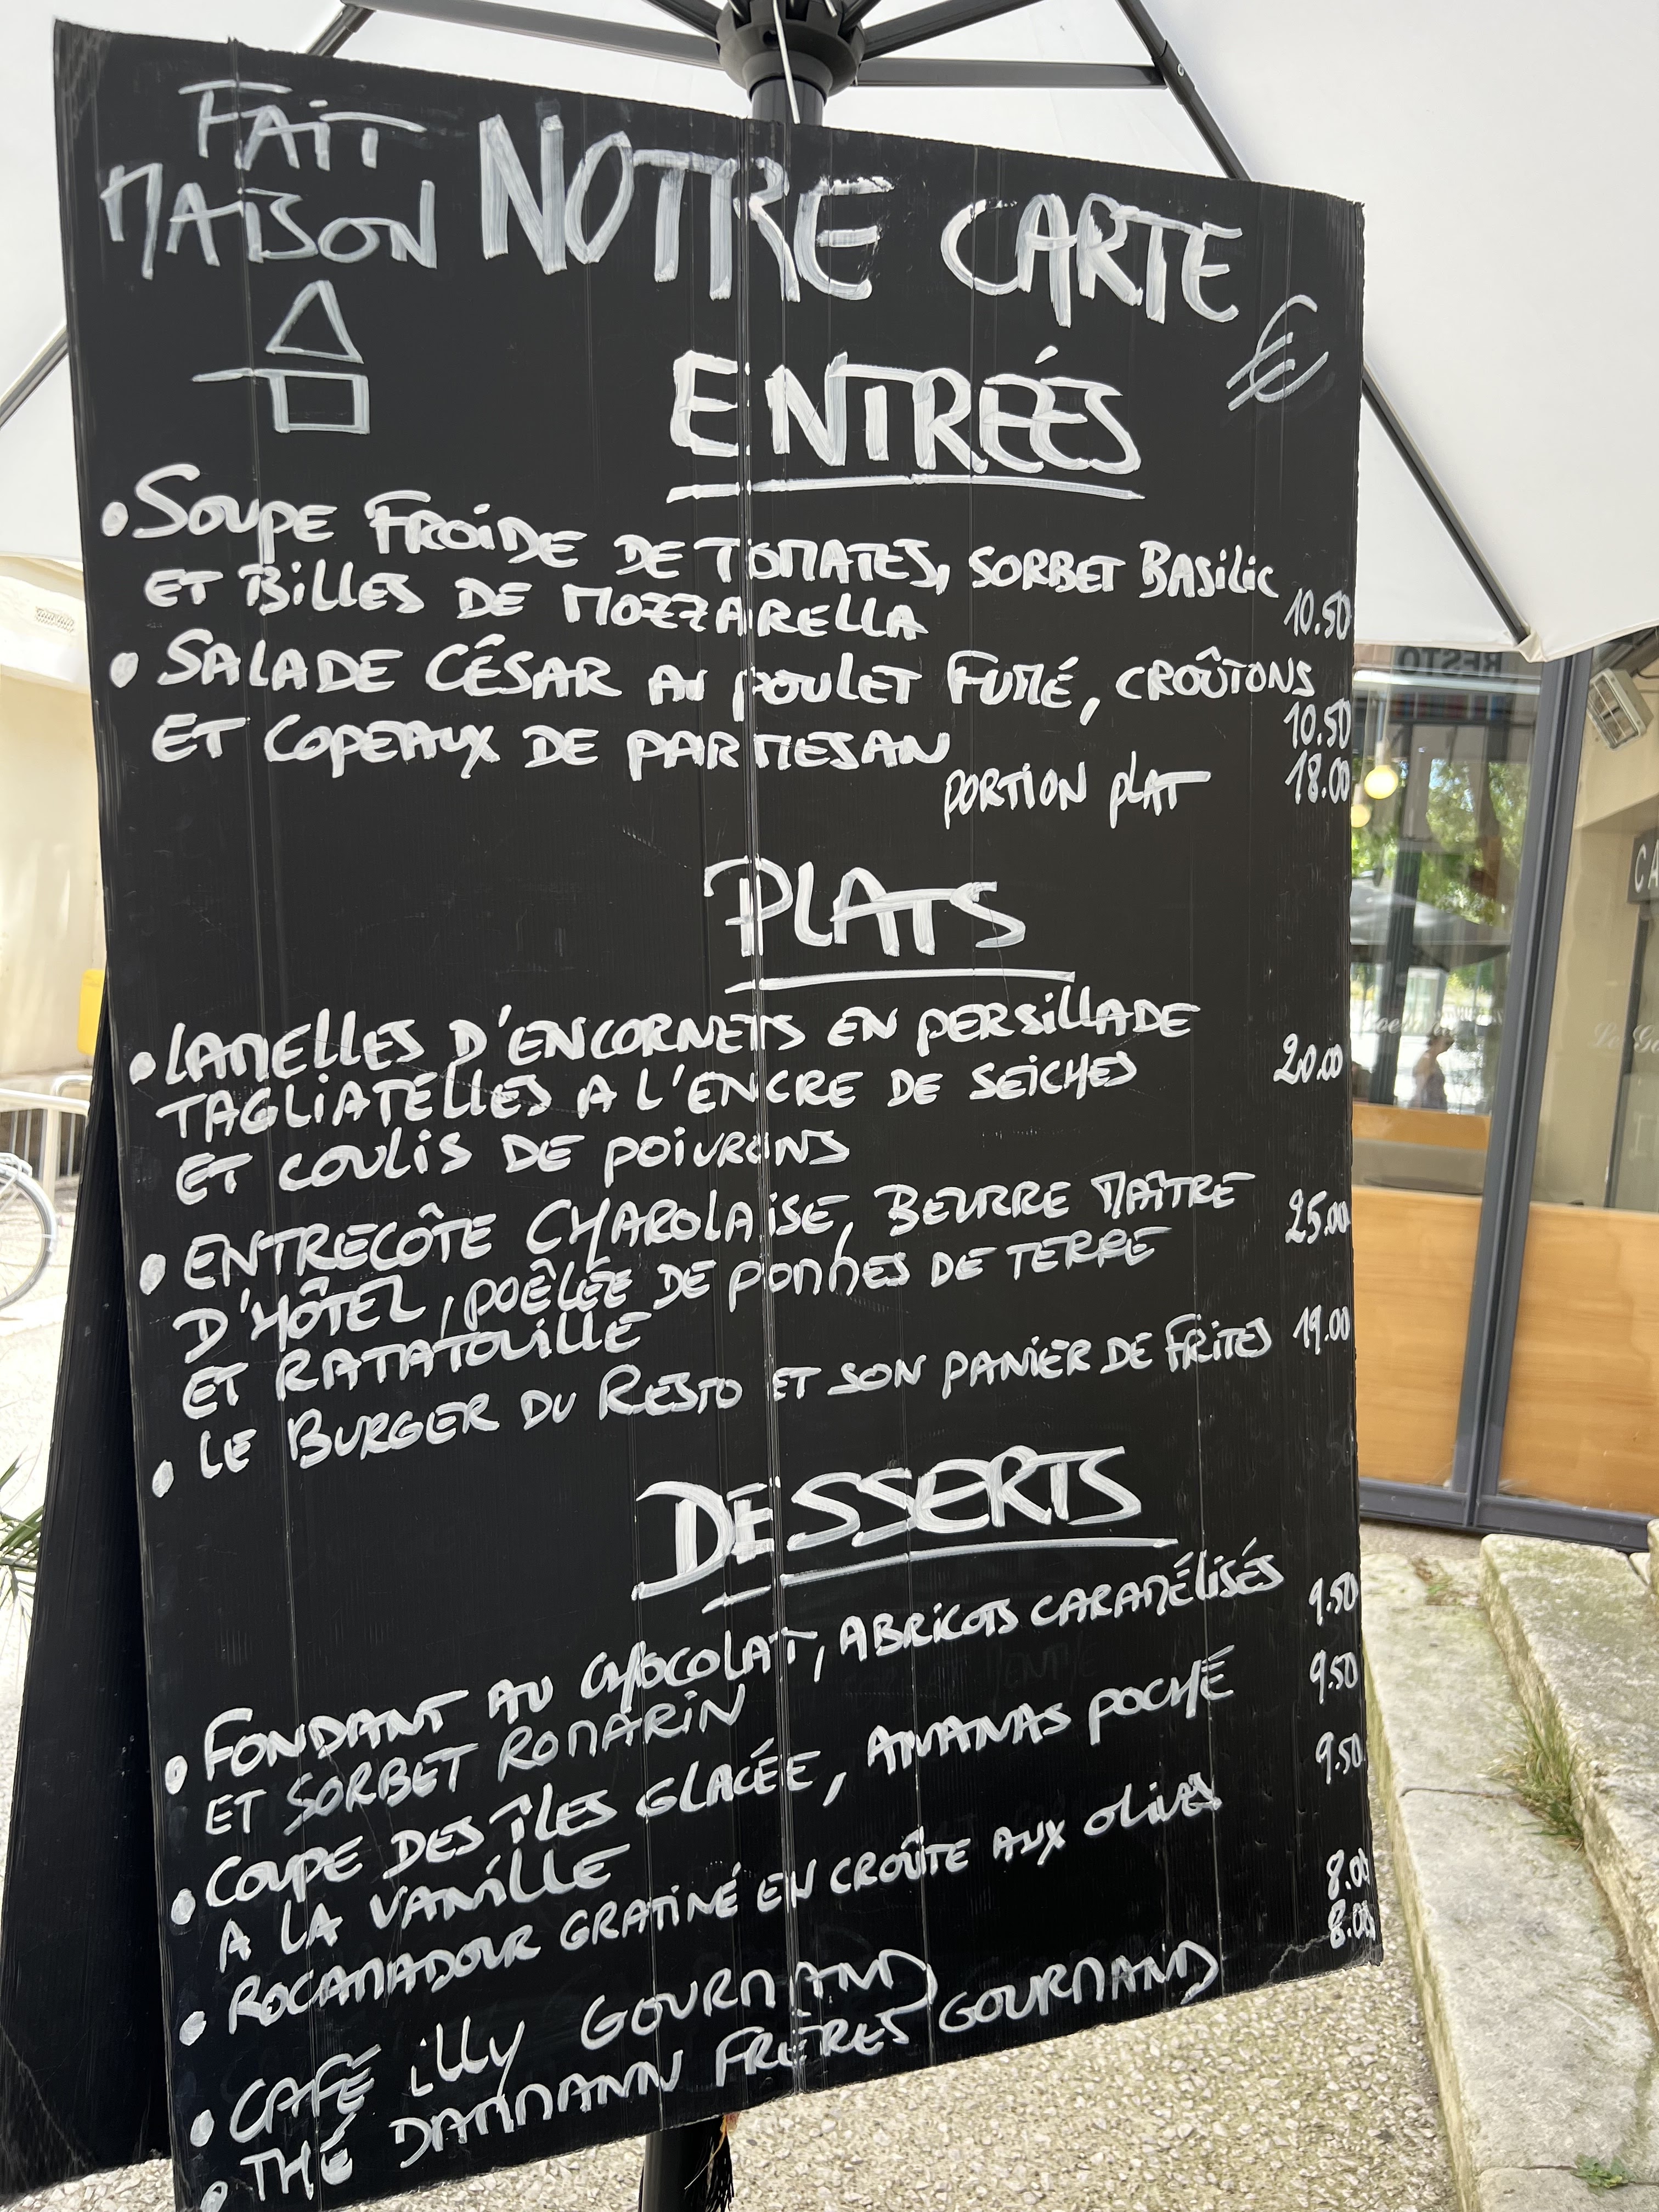 FAIT
MAISON
NOTRE CARTE
€
ENTRÉES
• SOUPE FROIDE DE TOMATES, SORBET BASILIC
ET BILLES DE MOZZARELLA 10.50
• SALADE CÉSAR AU POULET FUMÉ, CROÛTONS
ET COPEAUX DE PARMESAN 10.50
PORTION PLAT 18.00
PLATS
• LAMELLES D'ENCORNETS EN PERSILLADE
TAGLIATELLES A L'ENCRE DE SEICHES 20.00
ET COULIS DE POIVRONS
• ENTRECÔTE CHAROLAISE, BEURRE MAÎTRE 25.00
D'HÔTEL, POÊLÉE DE POMMES DE TERRE
ET RATATOUILLE
• LE BURGER DU RESTO ET SON PANIER DE FRITES 19.00
DESSERTS
• FONDANT AU CHOCOLAT, ABRICOTS CARAMÉLISÉS 9.50
ET SORBET ROMARIN
• COUPE DES ÎLES GLACÉE, ANANAS POCHÉ 9.50
A LA VANILLE
• ROCAMADOUR GRATINÉ EN CROÛTE AUX OLIVES 9.50
• CAFÉ ILLY GOURMAND 8.00
• THÉ DAMMANN FRÈRES GOURMAND 8.00
RESTO
CA